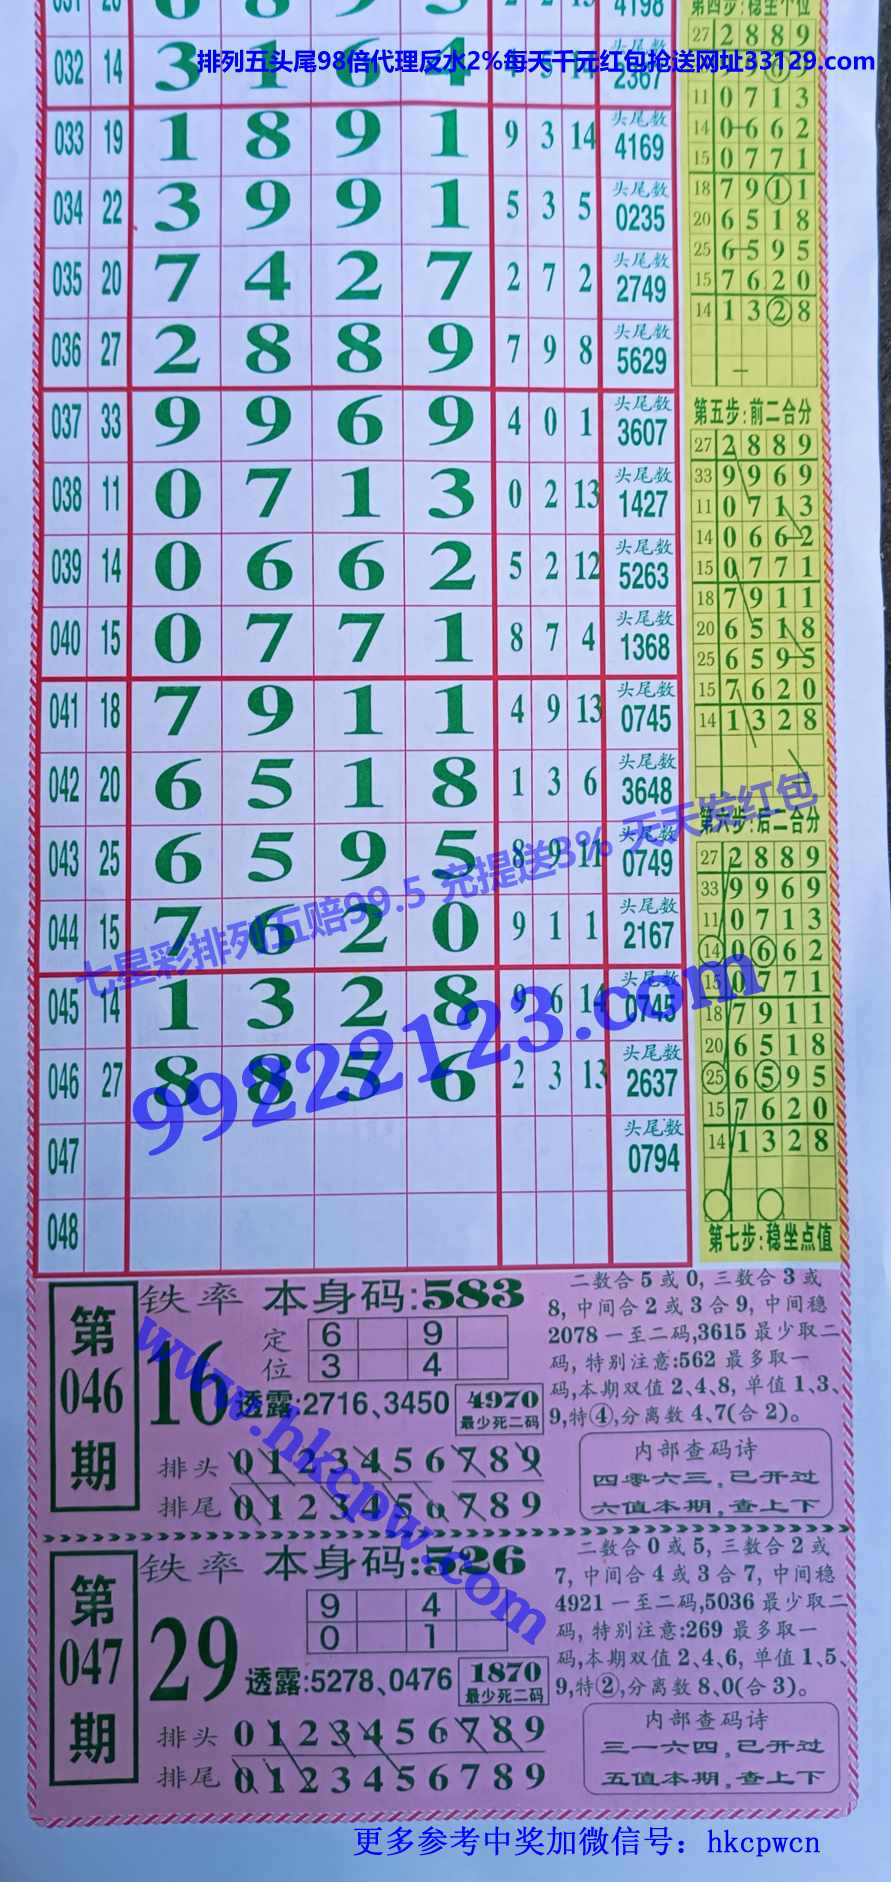 4198
第四步:稳坐个位
排列五头尾98倍代理反水2%每天千元红包抢送网址33129.com
032 14 3 1 6 4 4 5 14 头尾数 2367
033 19 1 8 9 1 9 3 14 头尾数 4169
034 22 3 9 9 1 5 3 5 头尾数 0235
035 20 7 4 2 7 2 7 2 头尾数 2749
036 27 2 8 8 9 7 9 8 头尾数 5629
037 33 9 9 6 9 4 0 1 头尾数 3607
038 11 0 7 1 3 0 2 13 头尾数 1427
039 14 0 6 6 2 5 2 12 头尾数 5263
040 15 0 7 7 1 8 7 4 头尾数 1368
041 18 7 9 1 1 4 9 13 头尾数 0745
042 20 6 5 1 8 1 3 6 头尾数 3648
043 25 6 5 9 5 8 9 11 头尾数 0749
044 15 7 6 2 0 9 1 1 头尾数 2167
045 14 1 3 2 8 9 6 14 头尾数 0745
046 27 8 8 5 6 2 3 13 头尾数 2637
047 头尾数 0794
048
27 2 8 8 9
11 0 7 1 3
14 0 6 6 2
15 0 7 7 1
18 7 9 1 1
20 6 5 1 8
25 6 5 9 5
15 7 6 2 0
14 1 3 2 8
第五步:前二合分
27 2 8 8 9
33 9 9 6 9
11 0 7 1 3
14 0 6 6 2
15 0 7 7 1
18 7 9 1 1
20 6 5 1 8
25 6 5 9 5
15 7 6 2 0
14 1 3 2 8
第六步:后二合分
27 2 8 8 9
33 9 9 6 9
11 0 7 1 3
14 0 6 6 2
15 0 7 7 1
18 7 9 1 1
20 6 5 1 8
25 6 5 9 5
15 7 6 2 0
14 1 3 2 8
第七步:稳坐点值
七星彩排列五赔99.5 充提送3% 天天发红包
99222123.com
www.hkcpw.com
第046期
铁率 本身码:583
16
定位
6 9
3 4
透露:2716、3450
4970
最少死二码
排头 0 1 2 3 4 5 6 7 8 9
排尾 0 1 2 3 4 5 6 7 8 9
二数合5或0,三数合3或
8,中间合2或3合9,中间稳
2078一至二码,3615最少取二
码,特别注意:562最多取一
码,本期双值2、4、8,单值1、3、
9,特④,分离数4、7(合2)。
内部查码诗
四零六三,已开过
六值本期,查上下
第047期
铁率 本身码:526
29
9 4
0 1
透露:5278、0476
1870
最少死二码
排头 0 1 2 3 4 5 6 7 8 9
排尾 0 1 2 3 4 5 6 7 8 9
二数合0或5,三数合2或
7,中间合4或3合7,中间稳
4921一至二码,5036最少取二
码,特别注意:269最多取一
码,本期双值2、4、6,单值1、5、
9,特②,分离数8、0(合3)。
内部查码诗
三一六四,已开过
五值本期,查上下
更多参考中奖加微信号：hkcpwcn